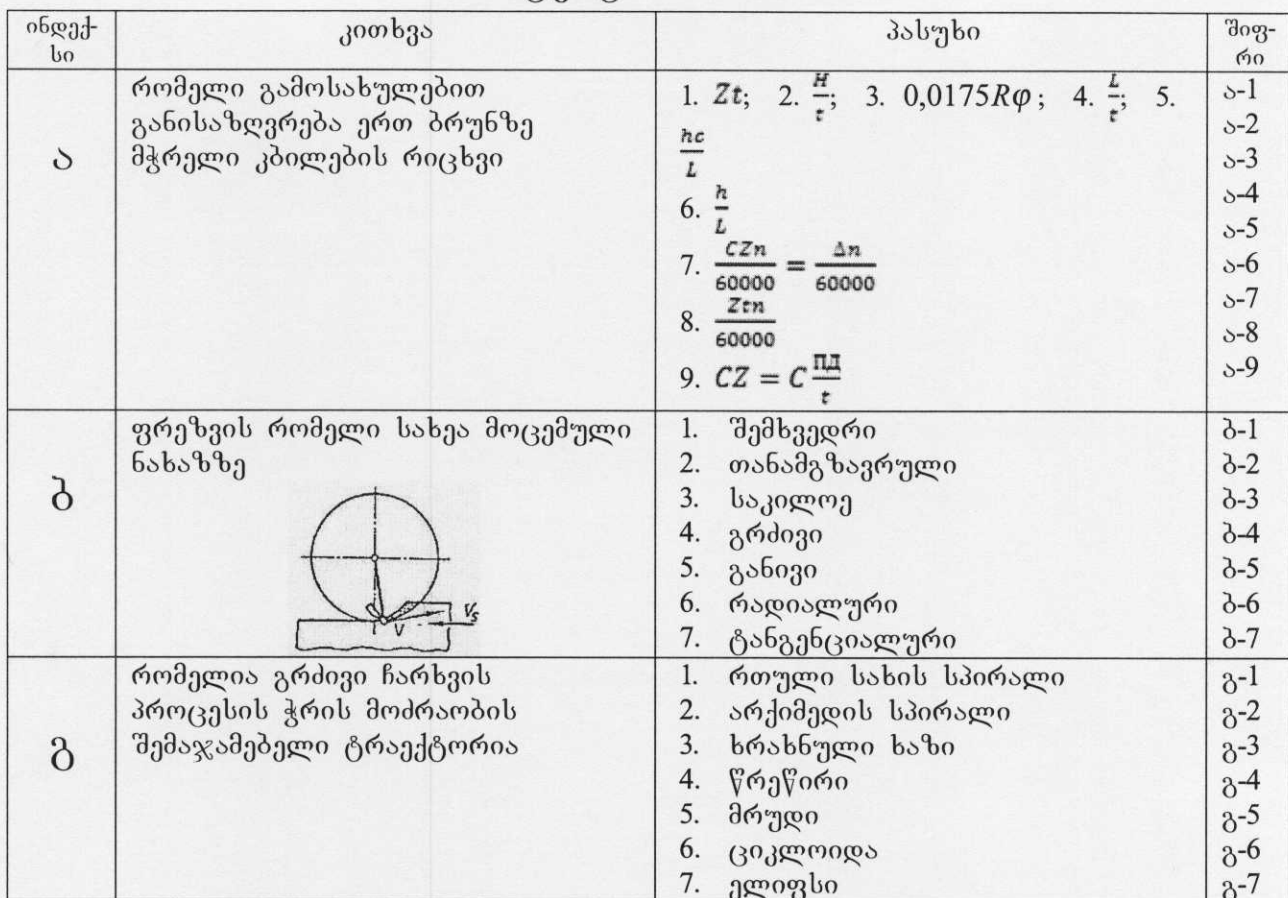 ინდექ- კითხვა პასუხი შიფ-
სი რი
ა
რომელი გამოსახულებით
განისაზღვრება ერთ ბრუნზე
მჭრელი კბილების რიცხვი
1. Zt; 2. H/t; 3. 0,0175Rφ; 4. L/t; 5.
hc/L
6. h/L
7. CZn/60000 = Δn/60000
8. Ztn/60000
9. CZ = C ПД/t
ა-1
ა-2
ა-3
ა-4
ა-5
ა-6
ა-7
ა-8
ა-9
ბ
ფრეზვის რომელი სახეა მოცემული
ნახაზზე
V Vs
1. შემხვედრი
2. თანამგზავრული
3. საკილოე
4. გრძივი
5. განივი
6. რადიალური
7. ტანგენციალური
ბ-1
ბ-2
ბ-3
ბ-4
ბ-5
ბ-6
ბ-7
გ
რომელია გრძივი ჩარხვის
პროცესის ჭრის მოძრაობის
შემაჯამებელი ტრაექტორია
1. რთული სახის სპირალი
2. არქიმედის სპირალი
3. ხრახნული ხაზი
4. წრეწირი
5. მრუდი
6. ციკლოიდა
7. ელიფსი
გ-1
გ-2
გ-3
გ-4
გ-5
გ-6
გ-7